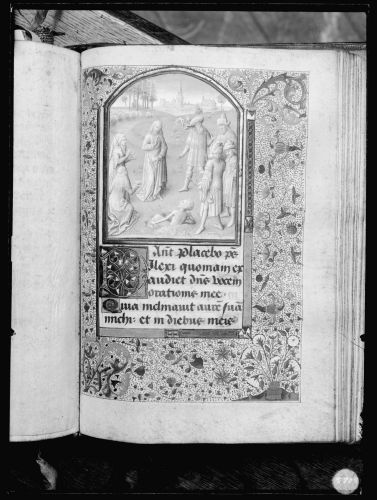 Añt Placebo
Dilexi quoniam ex
audiet dñs vocem
orationis mee.
Quia inclinauit aurē suā
michi: et in diebus meis